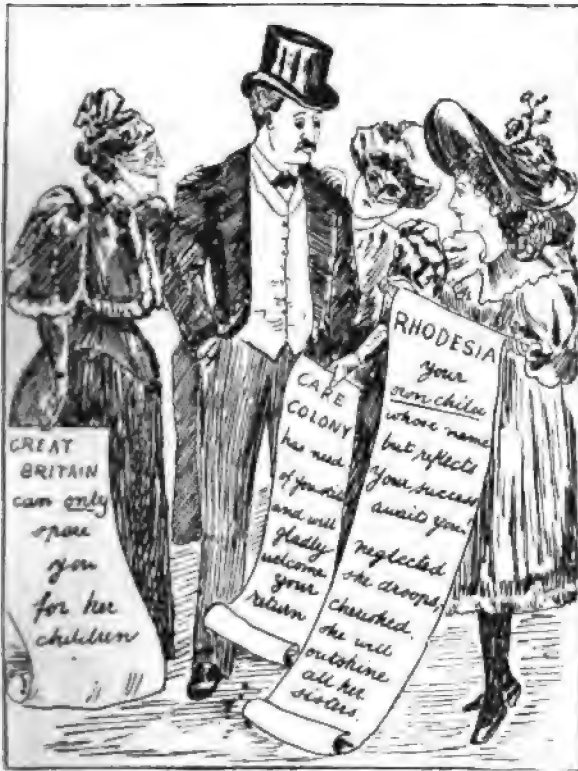 GREAT
BRITAIN
can only
spare
you
for her
children
CAPE
COLONY
has need
of you still
and will
gladly
welcome
your
return
RHODESIA
your
own child
whose name
but reflects
your success
awaits you!
neglected
she droops,
cherished.
she will
outshine
all her
sisters.